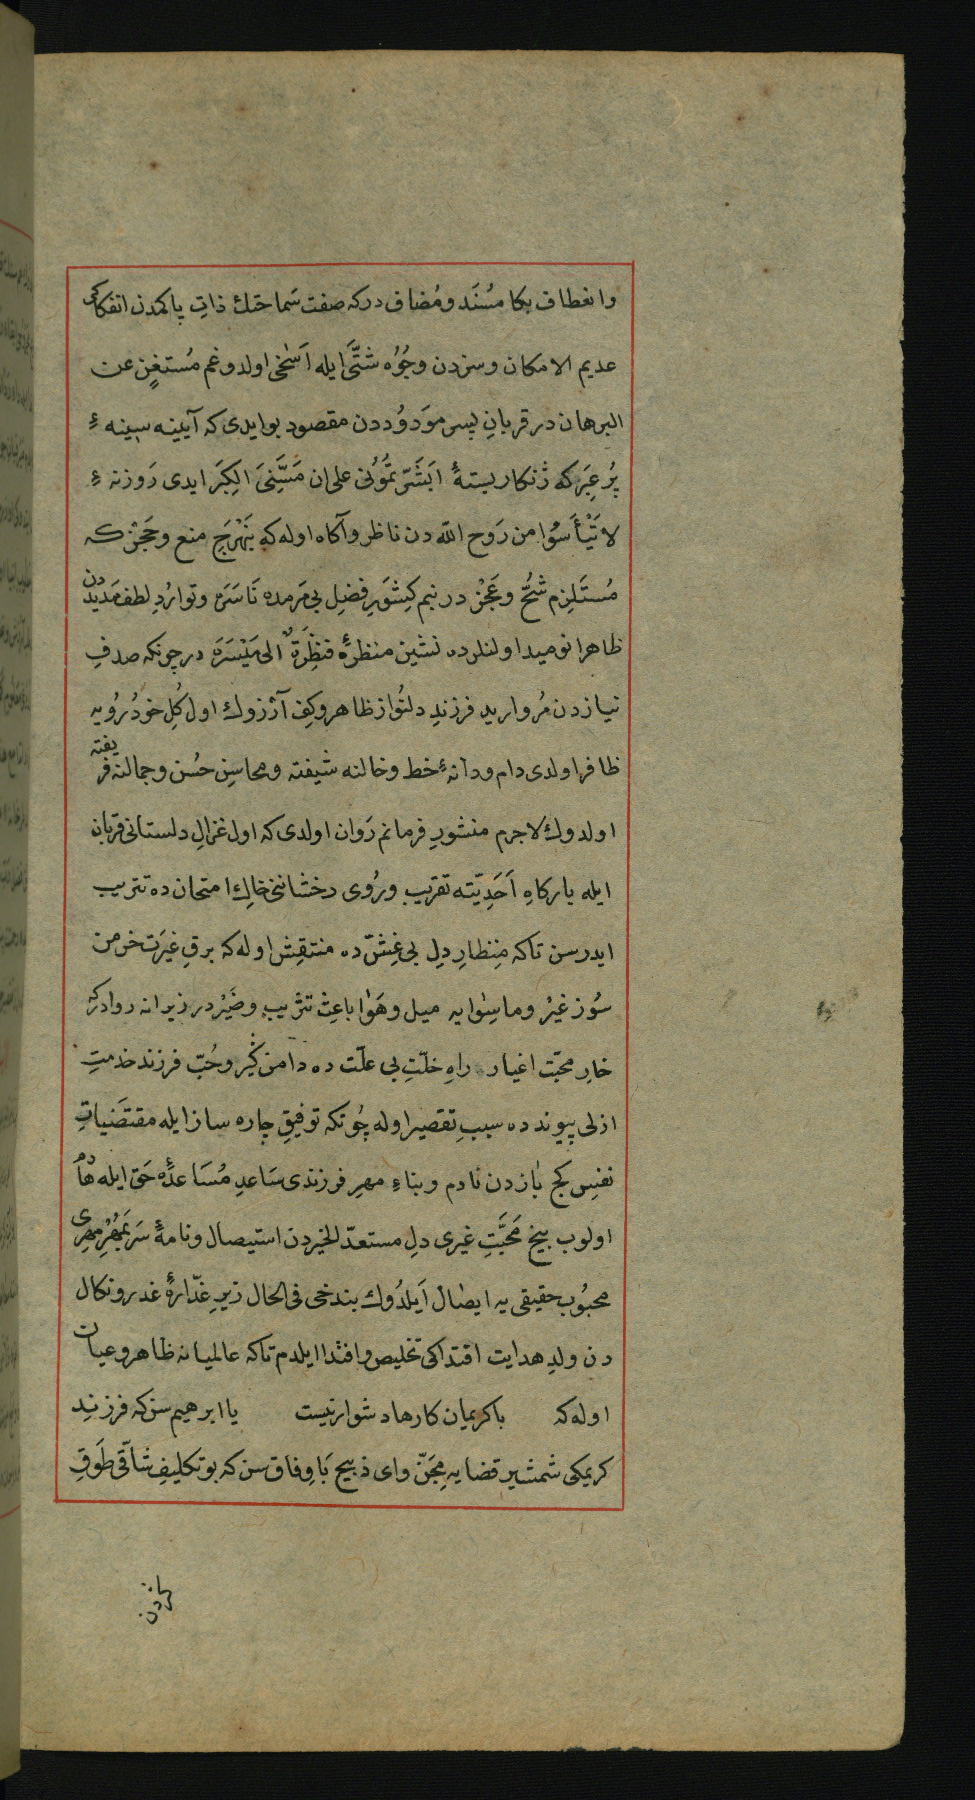 وانعطاف بكا مُسنَد ومُضاف دركه صفت سَماحتك ذاتِ پاكمدن انفكاكى
عديم الامكان وسندن وجُوُه شتَّى ايله اَسْخى اولدوغم مُستغنٍ عن
البرهان در قربانِ پسر موَدوُددن مقصود بو ايدى كه آيينه سينه ءِ
پُر عِبَر كه ژنكار بستۀ ابَشَّرتمُونى على ان مَسَّنِىَ الكِبَر ايدى رَوزنه ءِ
لا تَيْأَسُوا من رَوح اللّٰه دن ناظر وآكاه اوله كه منع وحَجْز كه
مُستَلزِم شُحّ وعَجْز در بنم كِشوَرِ فضلِ بى مَرمده نَاسَره وتواردِ لطف مَديددن
ظاهرا نوميد اولنلرده نشين منظرۀ فنظِرَةٌ الى مَيْسَرَه در چونكه صدفِ
نيازدن مُرواريد فرزندِ دلنُواز ظاهر وكفِ آرزوك اول كُلِ خودْرُويه
ظافر اولدى دام ودانۀ خط وخالنه شيفته ومحاسِن حُسن وجمالنه فريفته
اولدوك لاجرم منشورِ فرمانم رَوان اولدى كه اول غزالِ دلستانى قربان
ايله باركاهِ اَحَدِيّته تقريب ورُوى دخشاننى خاكِ امتحان ده تتريب
ايدرسن تاكه مِنظارِ دِل بى غِشّ ده منتقِش اوله كه برقِ غيرَت خرمن
سُوز غيرْ وماسِوٰايه ميل وهَوٰا باعِث تثريب وضَيْر در زيرا نه روادركه
خارِ محبّت اغيار راهِ خلّتِ بى علّت ده دامن كْير وحُبّ فرزند خدمتِ
ازلى پيوند ده سببِ تقصير اوله چُونكه توفيقِ چاره ساز ايله مقتضَياتِ
نفسِ كج بٰازدن نادم وبناءِ مهرِ فرزندى سَاعدِ مُسَاعدۀ حَق ايله هادم
اولوب بيخِ مَحبَّتِ غيرى دلِ مستعدّ لخيردن استيصال ونامۀ سَر بَمُهْرِ مِهرى
محبُوب حقيقى يه ايصال اَيلدُوك بندخى فى الحال زيرِ غدّارۀ غدر ونكال
دن ولدِ هدايت اقتداكى تخليص وافتدا ايلدم تاكه عالميانه ظاهر وعيان
اوله كه باكريمان كارها دشوار نيست يا ابرهيم سن كه فرزندِ
كريمكى شمشيرِ قضايه مِجَنّ واى ذبيح بَاوِفاق سن كه بو تكليفِ شاقّى طَوقِ